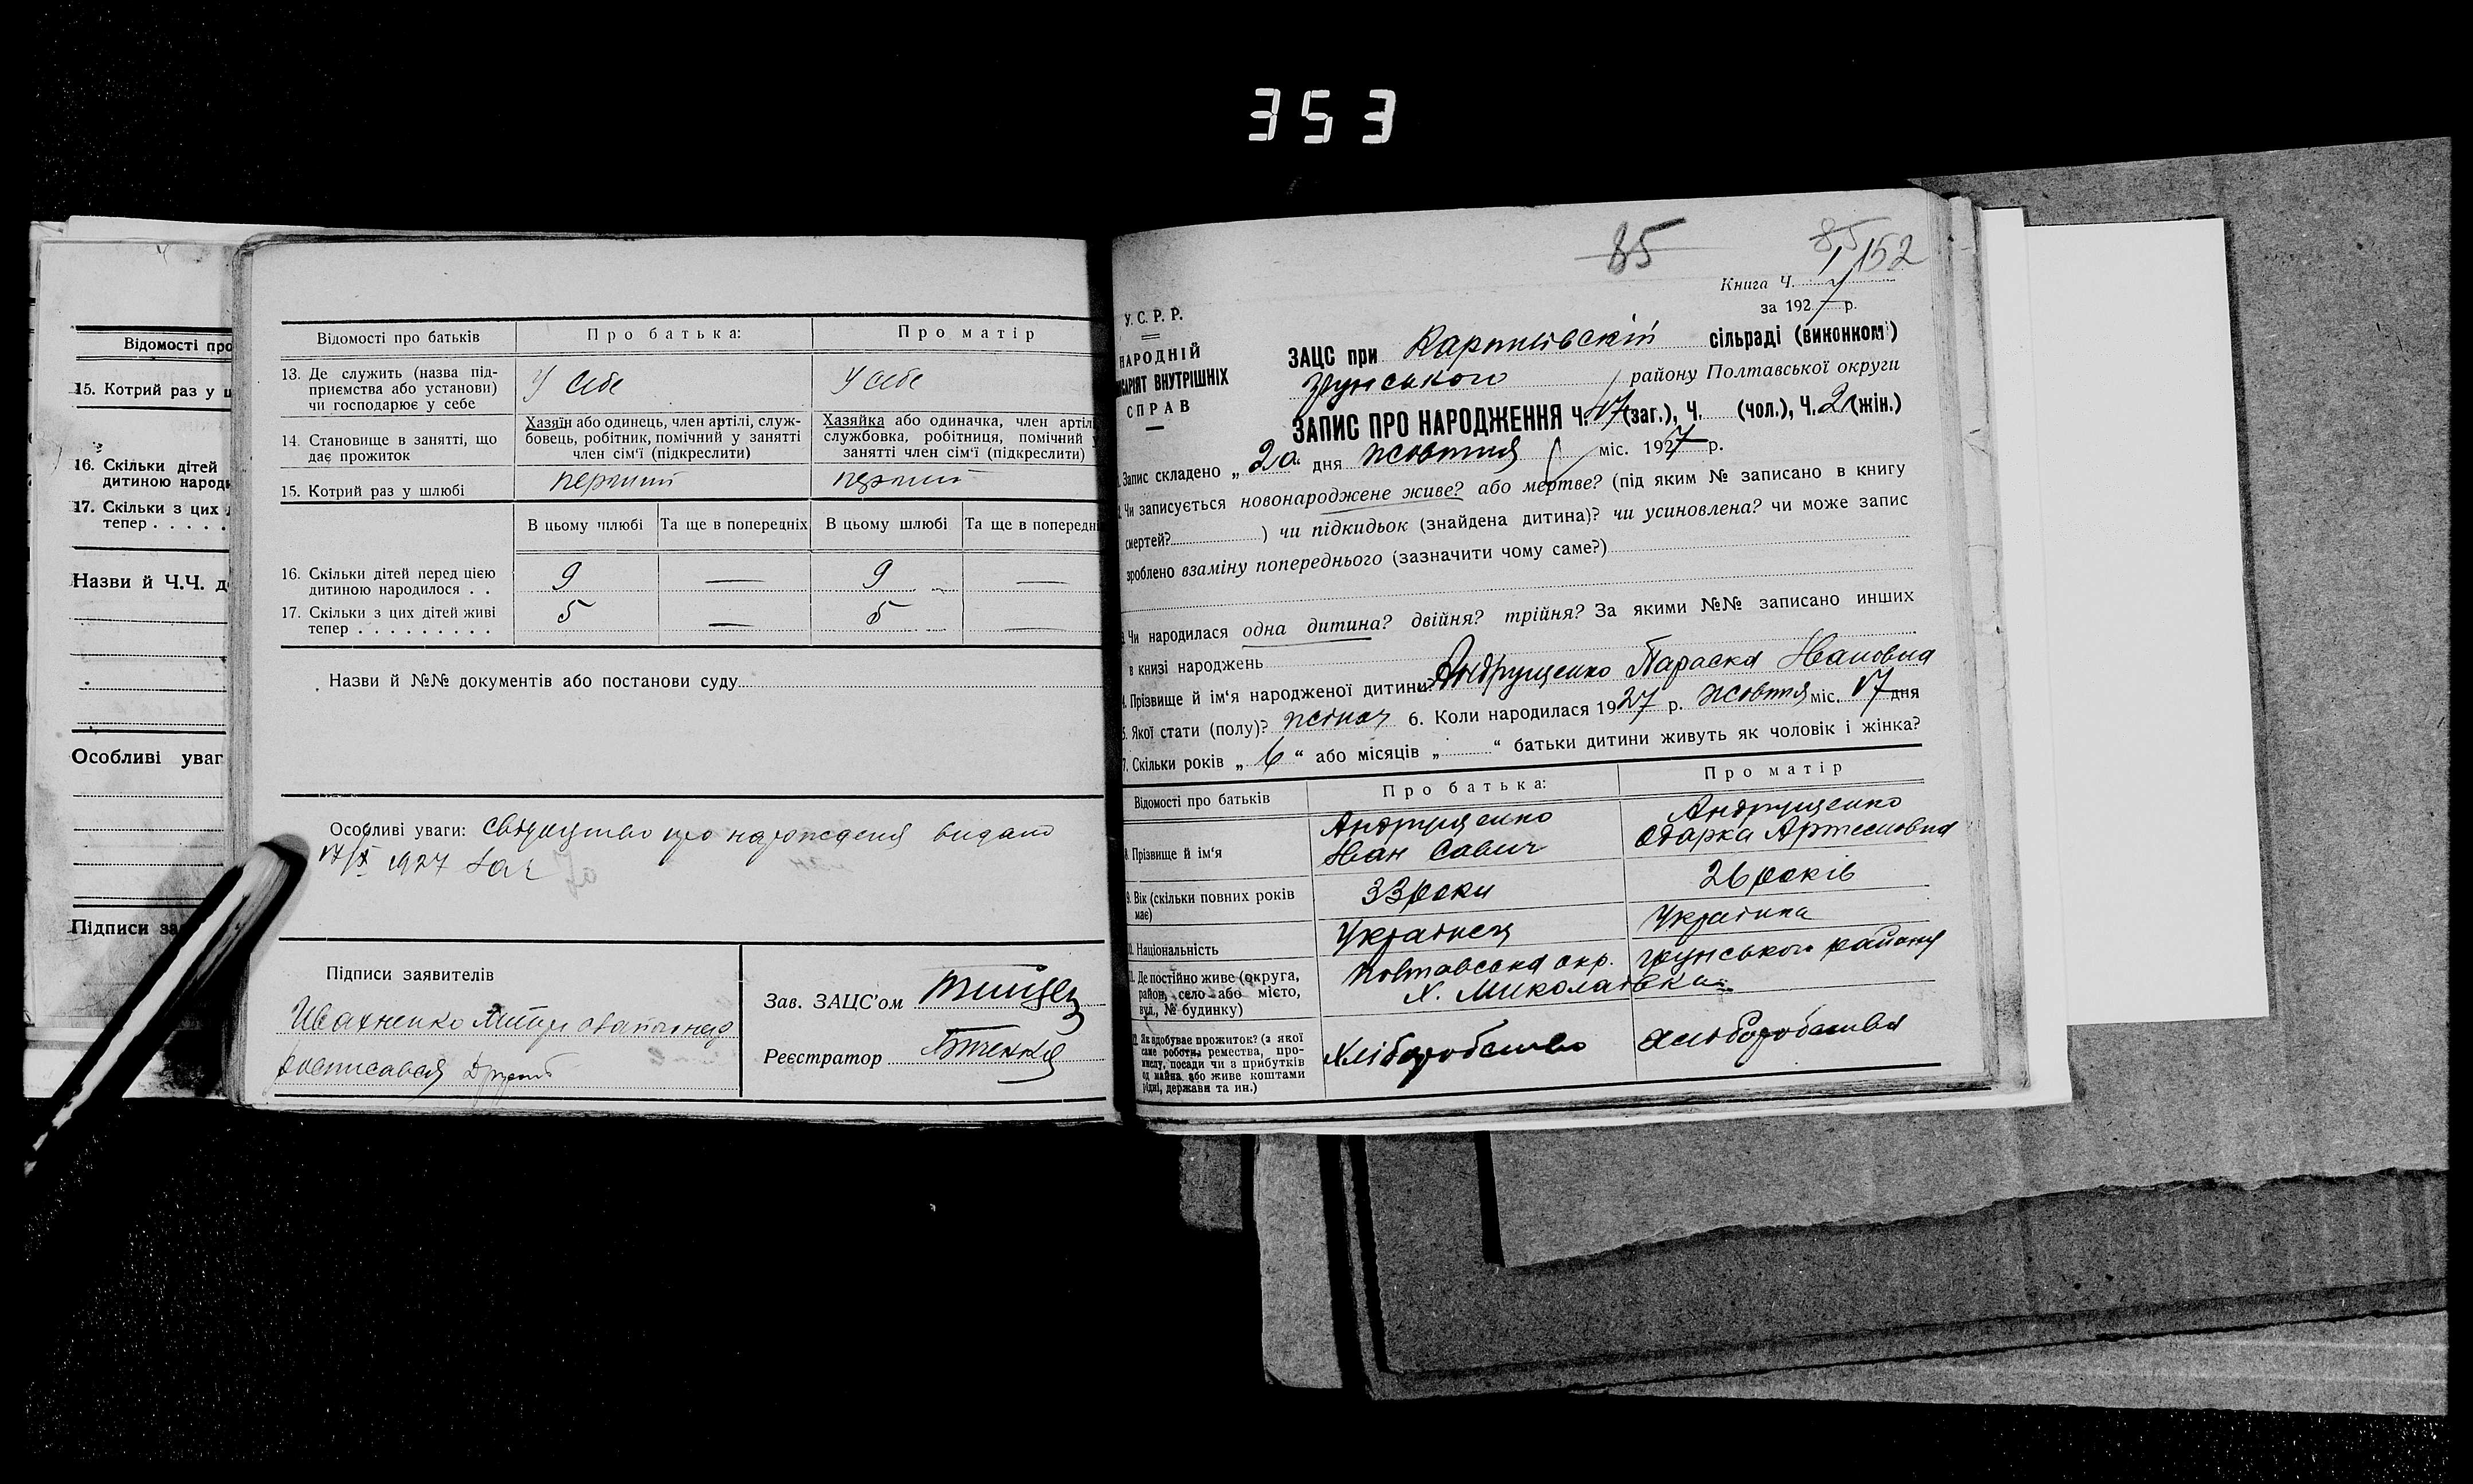 353
Відомості про
15. Котрий раз у ш
16. Скільки дітей
дитиною народи
17. Скільки з цих
тепер . . . . .
Назви й Ч.Ч. д
Особливі уваг
Підписи за
Відомості про батьків
Про батька:
Про матір
13. Де служить (назва під-
приємства або установи)
чи господарює у себе
У себе
У себе
14. Становище в занятті, що
дає прожиток
Хазяїн або одинець, член артілі, служ-
бовець, робітник, помічний у занятті
член сім'ї (підкреслити)
Хазяйка або одиначка, член артілі
службовка, робітниця, помічний у
занятті член сім'ї (підкреслити)
15. Котрий раз у шлюбі
перший
перший
В цьому шлюбі
Та ще в попередніх
В цьому шлюбі
Та ще в попередні
16. Скільки дітей перед цією
дитиною народилося . .
9 — 9 —
17. Скільки з цих дітей живі
тепер . . . . . . . . .
5 — 5 —
Назви й №№ документів або постанови суду
Особливі уваги: свідоцтво про народженя видано
17/X 1927 за ч
Підписи заявителів
Ивахненко
росписався
Зав. ЗАЦС'ом
Реєстратор
85
85 152
Книга Ч. 1
за 1927 р.
У.С.Р.Р.
НАРОДНІЙ
КОМІСАРІЯТ ВНУТРІШНІХ
СПРАВ
ЗАЦС при сільраді (виконкомі)
Грунського району Полтавської округи
ЗАПИС ПРО НАРОДЖЕННЯ Ч. 47 (заг.), Ч. (чол.), Ч. 21 (жін.)
1. Запис складено „20“ дня жовтня міс. 1927 р.
2. Чи записується новонароджене живе? або мертве? (під яким № записано в книгу
смертей? ) чи підкидьок (знайдена дитина)? чи усиновлена? чи може запис
зроблено взаміну попереднього (зазначити чому саме?)
3. Чи народилася одна дитина? двійня? трійня? За якими №№ записано инших
в книзі народжень
4. Прізвище й ім'я народженої дитини: Андрущенко Параска Ивановна
5. Якої стати (полу)? жіноч 6. Коли народилася 1927 р. жовтня міс. 17 дня
7. Скільки років „6“ або місяців „ “ батьки дитини живуть як чоловік і жінка?
Відомості про батьків
Про батька:
Про матір
8. Прізвище й ім'я
Андрущенко
Иван Савич
Андрущенко
Одарка Артемовна
9. Вік (скільки повних років
має)
33 роки
26 років
10. Національність
Українец
Українка
11. Де постійно живе (округа,
район, село або місто,
вул., № будинку)
Полтавська окр. грунського района
Х. Миколаївка
12. Як здобуває прожиток? (з якої
саме роботи, ремества, про-
мислу, посади чи з прибутків
од майна або живе коштами
рідні, держави та ин.)
Хліборобство
хліборобства